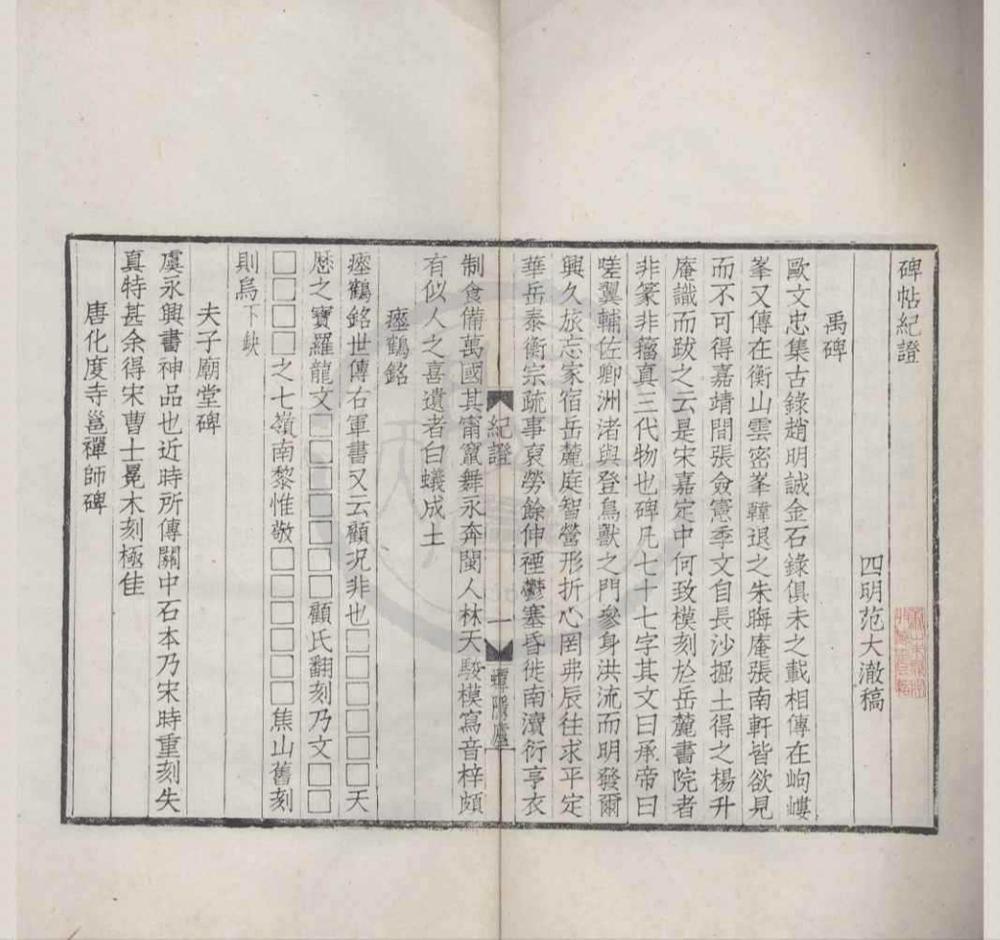 碑帖紀證
四明范大澈稿
禹碑
歐文忠集古錄趙明誠金石錄俱未之載相傳在岣嶁
峯又傳在衡山雲密峯韓退之朱晦庵張南軒皆欲見
而不可得嘉靖間張僉憲季文自長沙掘土得之楊升
庵識而跋之云是宋嘉定中何致模刻於岳麓書院者
非篆非籀真三代物也碑凡七十七字其文曰承帝曰
嗟翼輔佐卿洲渚與登鳥獸之門參身洪流而明發爾
興久旅忘家宿岳麓庭智營形折心罔弗辰往求平定
華岳泰衡宗疏事裒勞餘伸禋鬱塞昏徙南瀆衍亨衣
制食備萬國其甯竄舞永奔閩人林天駿模寫音梓頗
有似人之喜遺者白蟻成土
紀證
一
蟫隱廬
瘞鶴銘
瘞鶴銘世傳右軍書又云顧况非也□□□□□□天
歷之寶羅龍文□□□□□□□顧氏翻刻乃文□□
□□□□之七嶺南黎惟敬□□□□□□焦山舊刻
則烏下缺
夫子廟堂碑
虞永興書神品也近時所傳關中石本乃宋時重刻失
真特甚余得宋曹士冕木刻極佳
唐化度寺邕禪師碑